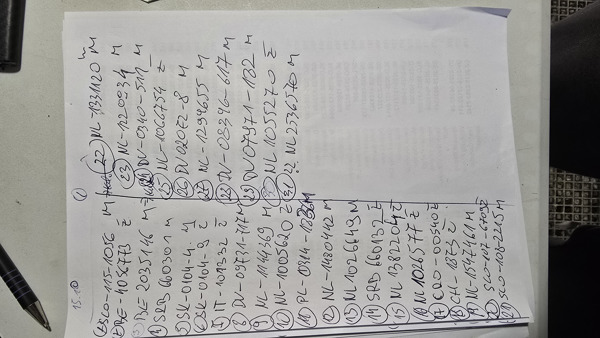 15.10
SCO-115-1056 M
2 BE-1056773 Ž
3 BE 2035146 M
4 SRB 660301 M
5 SK-0164-4 M
6 SK-0164-9 Ž
7 IT-101332 Ž
8 DV-09731-117 M
9 NL-1141369 M
10 NL-1005620 Ž
11 PL-0914-1836 M
12 NL-1480412 M
13 NL 1026649 M
14 SRB 660137 Ž
15 NL 1382204 Ž
16 NL 1026577 Ž
17 CRO-00540 Ž
18 CH-1873 Ž
19 NL-1547461 M
20 SCO-107-6405 Ž
21 SCO-108-2215 M
22 NL-1331120 M
23 NL-1120934 M
24 DV-0340-511 M
25 NL-1066754 Ž
26 DV02072-8 M
27 NL-1299655 M
28 DV-08396-617 M
29 DV07971-182 M
30 NL 1055270 Ž
31 22 NL2536570 M